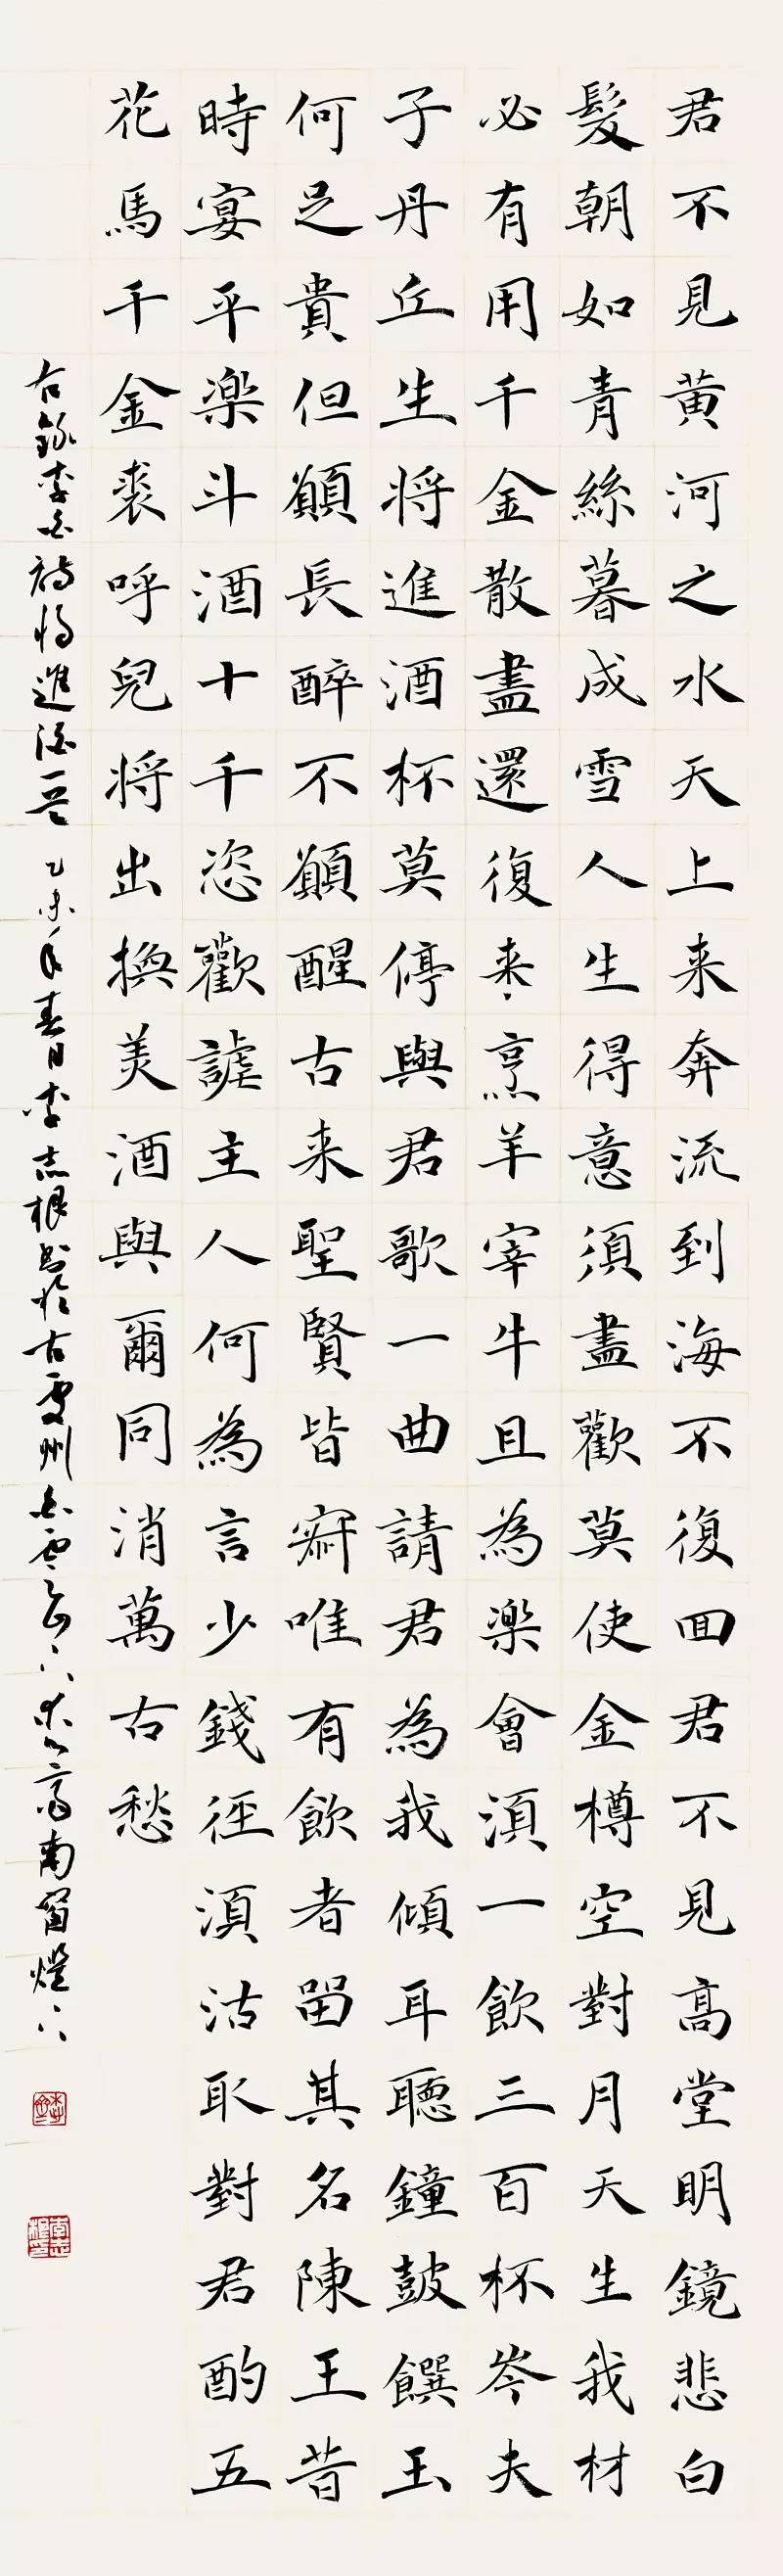 君不見黄河之水天上来奔流到海不復回君不見高堂明鏡悲白
髮朝如青絲暮成雪人生得意須盡歡莫使金樽空對月天生我材
必有用千金散盡還復来烹羊宰牛且為樂會須一飲三百杯岑夫
子丹丘生将進酒杯莫停與君歌一曲請君為我傾耳聽鐘鼓饌玉
何足貴但願長醉不願醒古来聖賢皆寂唯有飲者留其名陳王昔
時宴平樂斗酒十千恣歡謔主人何為言少錢徑須沽取對君酌五
花馬千金裘呼兒将出換美酒與爾同消萬古愁
右錄李白詩將進酒一首 乙未年春月李志根書於古虔州 齋南窗燈下